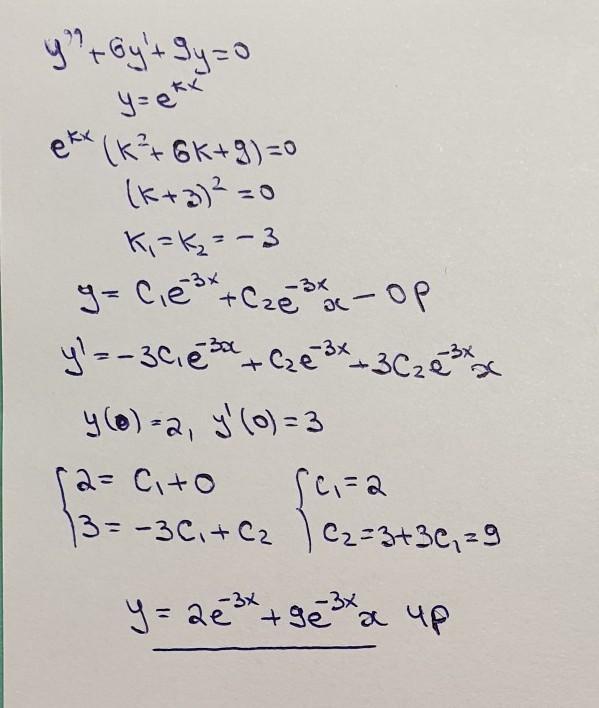 y'' + 6y' + 9y = 0
y = e^{kx}
e^{kx} (k² + 6k + 9) = 0
(k + 3)² = 0
k₁ = k₂ = -3
y = C₁e^{-3x} + C₂e^{-3x}x - OP
y' = -3C₁e^{-3x} + C₂e^{-3x} + 3C₂e^{-3x}x
y(0) = 2, y'(0) = 3
{ 2 = C₁ + 0 { C₁ = 2
3 = -3C₁ + C₂ C₂ = 3 + 3C₁ = 9
y = 2e^{-3x} + 9e^{-3x}x ЧР